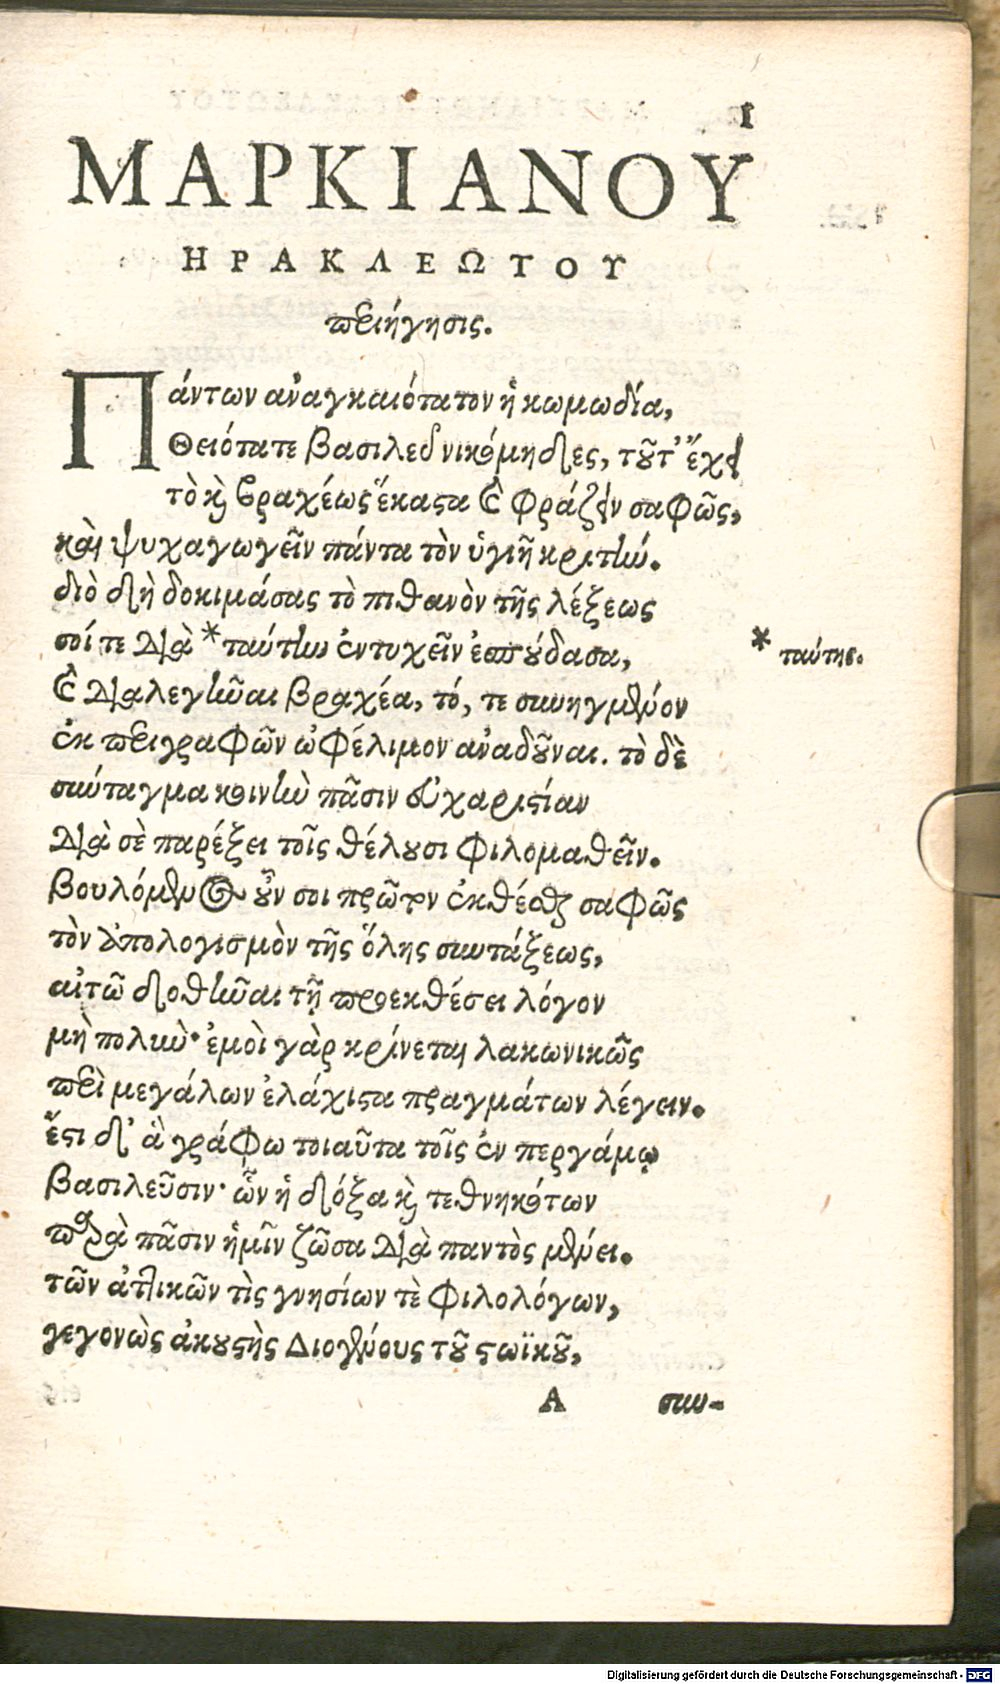 1
ΜΑΡΚΙΑΝΟΥ
ΗΡΑΚΛΕΩΤΟΥ
περιήγησις.
Πάντων ἀναγκαιότατον ἡ κωμωδία,
Θειότατε βασιλεῦ νικόμηδες, τοῦτ' ἔχει
τὸ καὶ βραχέως ἕκαστα καὶ φράζειν σαφῶς,
καὶ ψυχαγωγεῖν πάντα τὸν ὑγιῆ κριτήν.
διὸ δὴ δοκιμάσας τὸ πιθανὸν τῆς λέξεως
σοί τε διὰ *ταύτην ἐντυχεῖν ἐσπούδασα, * ταύτης.
καὶ διαλεγῆναι βραχέα, τό, τε συνηγμένον
ἐκ περιγραφῶν ὠφέλιμον ἀναδοῦναι. τὸ δὲ
σύνταγμα κοινὴν πᾶσιν εὐχαριστίαν
διὰ σὲ παρέξει τοῖς θέλουσι φιλομαθεῖν.
βουλόμενος οὖν σοι πρῶτον ἐκθέσθαι σαφῶς
τὸν ἀπολογισμὸν τῆς ὅλης συντάξεως,
αἰτῶ δοθῆναι τῇ προεκθέσει λόγον
μὴ πολύν· ἐμοὶ γὰρ κρίνεται λακωνικῶς
περὶ μεγάλων ἐλάχιστα πραγμάτων λέγειν.
ἔστι δ' ἃ γράφω τοιαῦτα τοῖς ἐν περγάμῳ
βασιλεῦσιν· ὧν ἡ δόξα καὶ τεθνηκότων
παρὰ πᾶσιν ἡμῖν ζῶσα διὰ παντὸς μένει.
τῶν ἀττικῶν τὶς γνησίων τὲ φιλολόγων,
γεγονὼς ἀκουστὴς Διογένους τοῦ στωϊκοῦ,
Α συν-
Digitalisierung gefördert durch die Deutsche Forschungsgemeinschaft - DFG